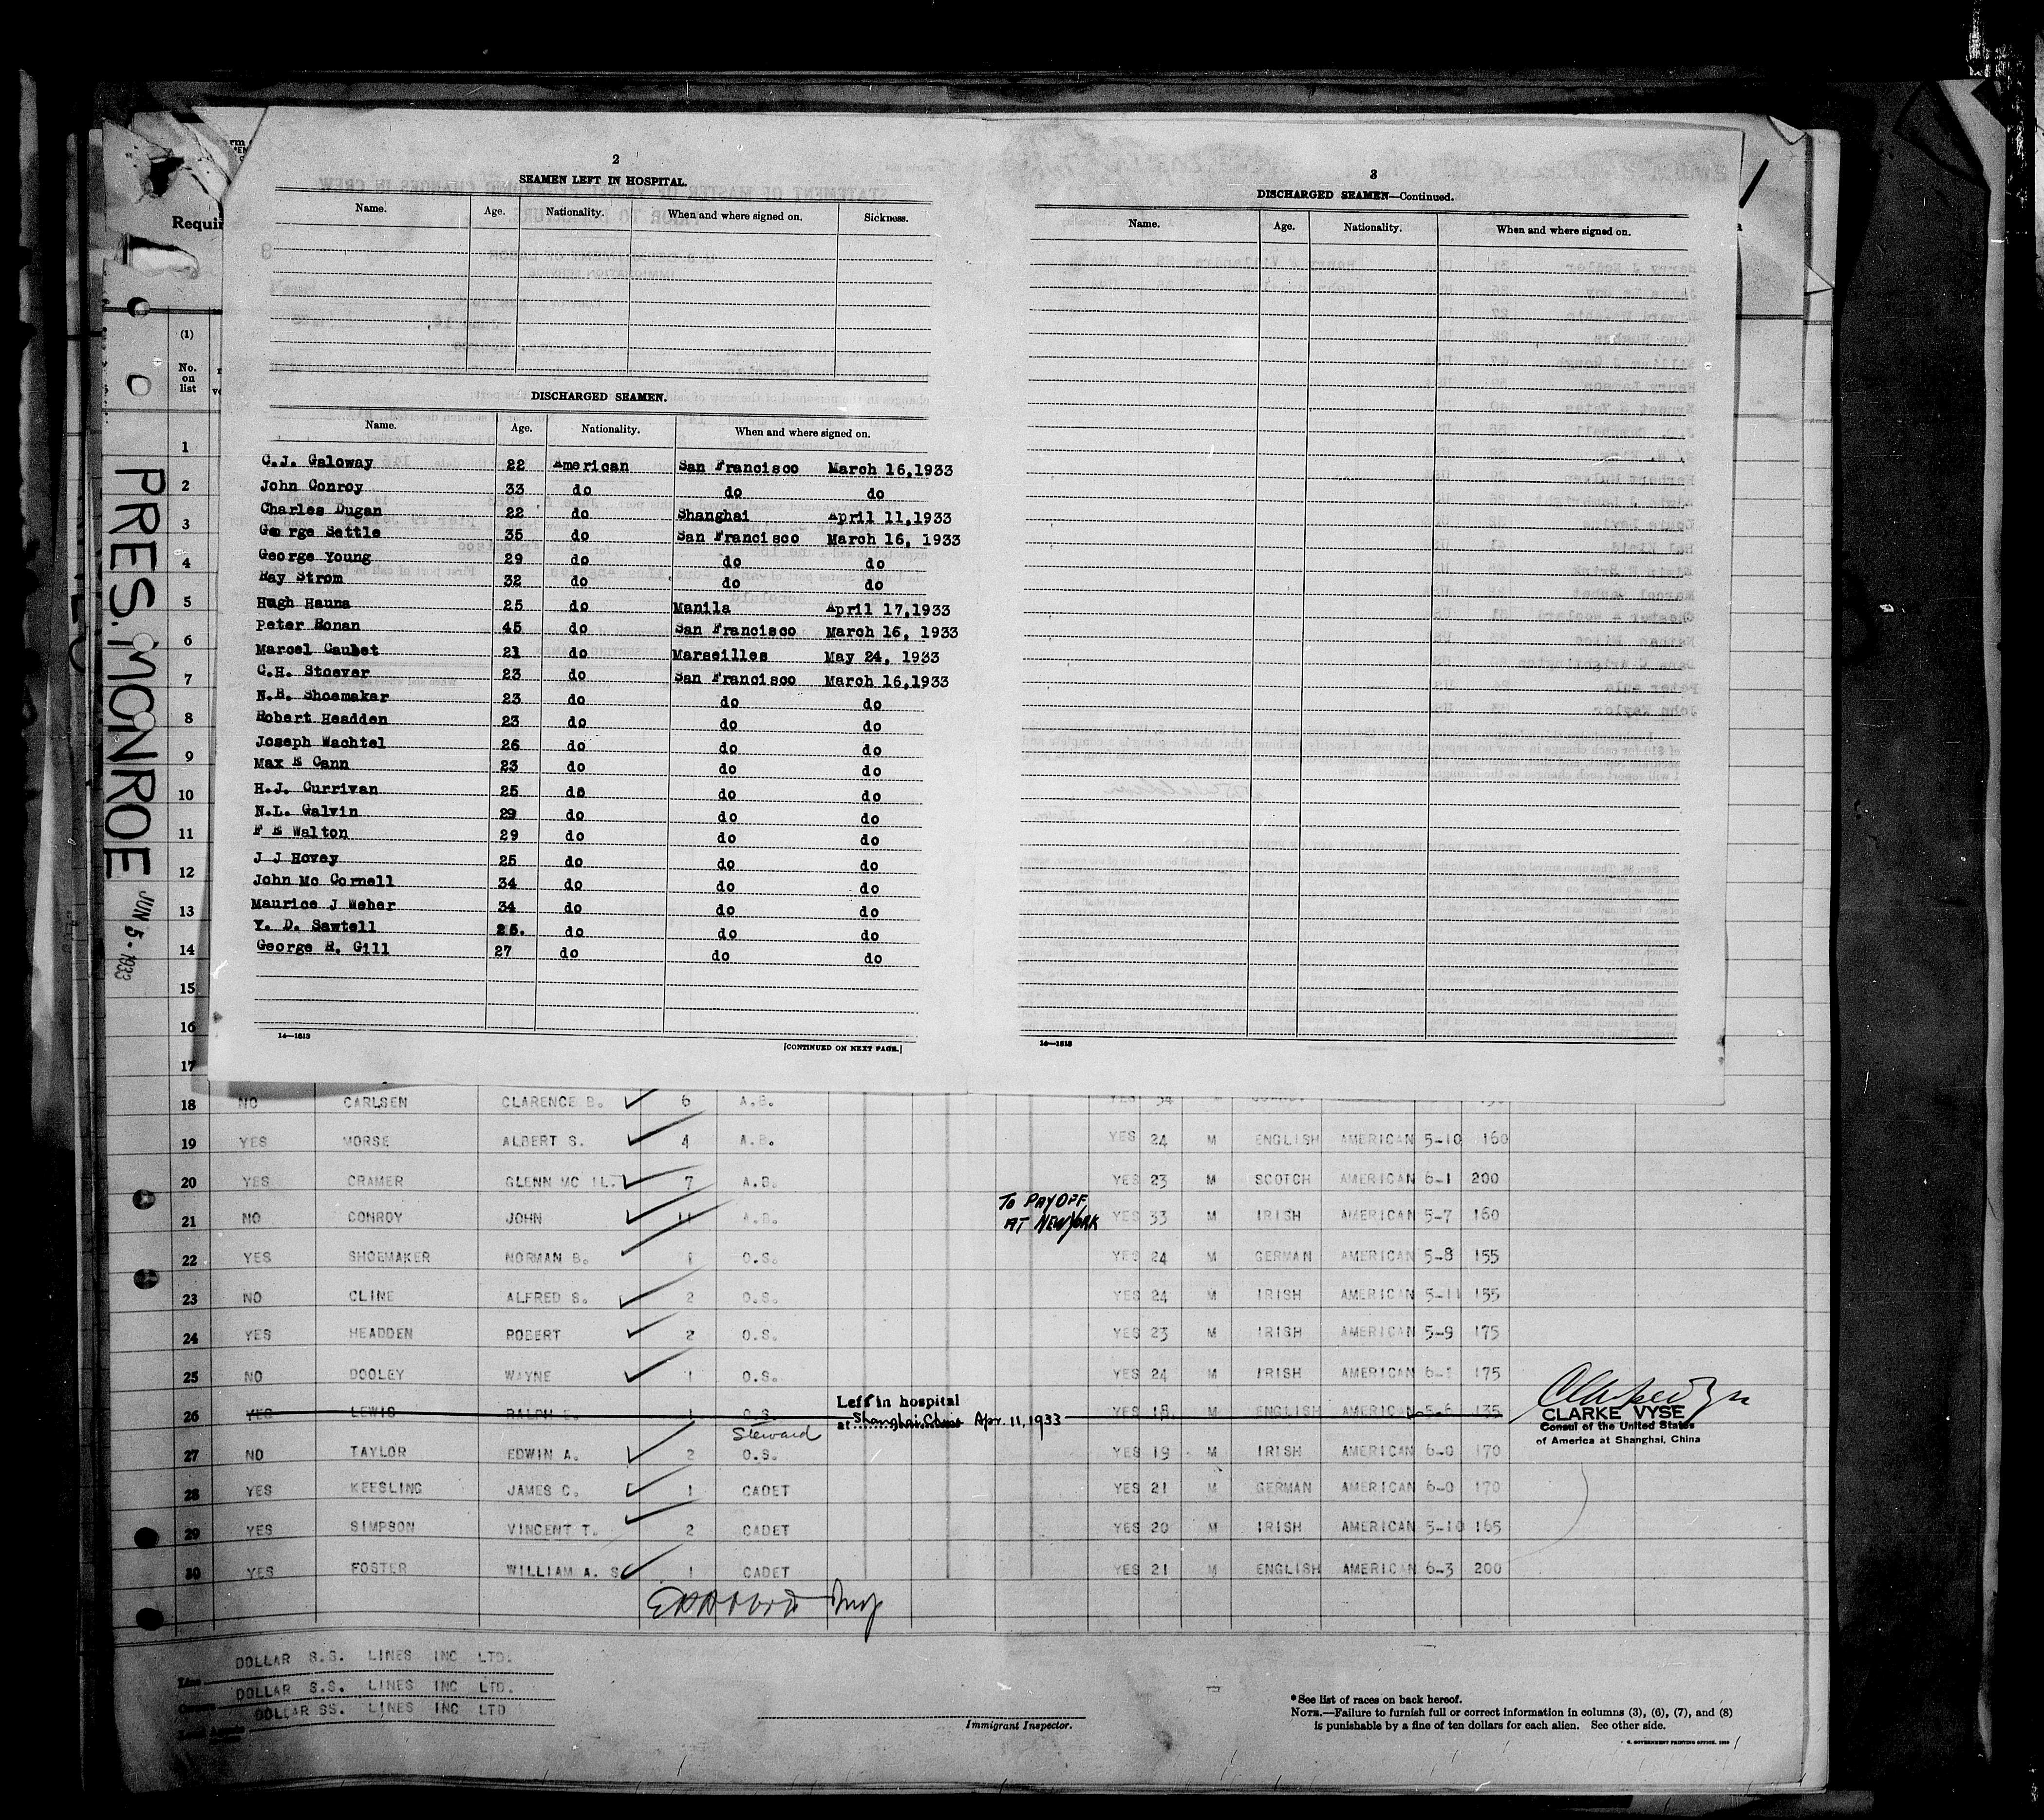 2
SEAMEN LEFT IN HOSPITAL.
Name. Age. Nationality. When and where signed on. Sickness.
DISCHARGED SEAMEN.
Name. Age. Nationality. When and where signed on.
C.J. Galoway 22 American San Francisco March 16,1933
John Conroy 33 do do do
Charles Dugan 22 do Shanghai April 11,1933
George Settle 35 do San Francisco March 16, 1933
George Young 29 do do do
Ray Strom 32 do do do
Hugh Hauna 25 do Manila April 17,1933
Peter Ronan 45 do San Francisco March 16, 1933
Marcel Caubet 21 do Marseilles May 24, 1933
C.H. Stoever 23 do San Francisco March 16,1933
N.B. Shoemaker 23 do do do
Robert Headden 23 do do do
Joseph Wachtel 26 do do do
Max E Cann 23 do do do
H.J. Currivan 25 do do do
N.L. Galvin 29 do do do
F E Walton 29 do do do
J J Hovey 25 do do do
John Mc Cornell 34 do do do
Maurice J Weher 34 do do do
Y. D. Sawtell 25. do do do
George R. Gill 27 do do do
14—1613
[CONTINUED ON NEXT PAGE.]
3
DISCHARGED SEAMEN—Continued.
Name. Age. Nationality. When and where signed on.
14—1613
Requir
(1)
No. on list
1
2
3
4
5
6
7
8
9
10
11
12
13
14
15
16
17
PRES. MONROE
JUN 5. 1933
18 NO CARLSEN CLARENCE B. 6 A.B. YES 34 M
19 YES MORSE ALBERT S. 4 A.B. YES 24 M ENGLISH AMERICAN 5-10 160
20 YES CRAMER GLENN MC IL. 7 A.B. YES 23 M SCOTCH AMERICAN 6-1 200
TO PAY OFF
AT NEW YORK
21 NO CONROY JOHN 11 A.B. YES 33 M IRISH AMERICAN 5-7 160
22 YES SHOEMAKER NORMAN B. 1 O.S. YES 24 M GERMAN AMERICAN 5-8 155
23 NO CLINE ALFRED S. 2 O.S. YES 24 M IRISH AMERICAN 5-11 155
24 YES HEADDEN ROBERT 2 O.S. YES 23 M IRISH AMERICAN 5-9 175
25 NO DOOLEY WAYNE 1 O.S. YES 24 M IRISH AMERICAN 6-1 175
Left in hospital
at Shanghai China Apr. 11, 1933
26 YES LEWIS RALPH E. 1 O.S. YES 18 M ENGLISH AMERICAN 5-6 135
CLARKE VYSE
Consul of the United States
of America at Shanghai, China
Steward
27 NO TAYLOR EDWIN A. 2 O.S. YES 19 M IRISH AMERICAN 6-0 170
28 YES KEESLING JAMES C. 1 CADET YES 21 M GERMAN AMERICAN 6-0 170
29 YES SIMPSON VINCENT T. 2 CADET YES 20 M IRISH AMERICAN 5-10 165
30 YES FOSTER WILLIAM A. S 1 CADET YES 21 M ENGLISH AMERICAN 6-3 200
Line DOLLAR S.S. LINES INC LTD.
Owners DOLLAR S.S. LINES INC LTD.
Local Agents DOLLAR SS. LINES INC LTD
Immigrant Inspector.
*See list of races on back hereof.
NOTE.—Failure to furnish full or correct information in columns (3), (6), (7), and (8)
is punishable by a fine of ten dollars for each alien. See other side.